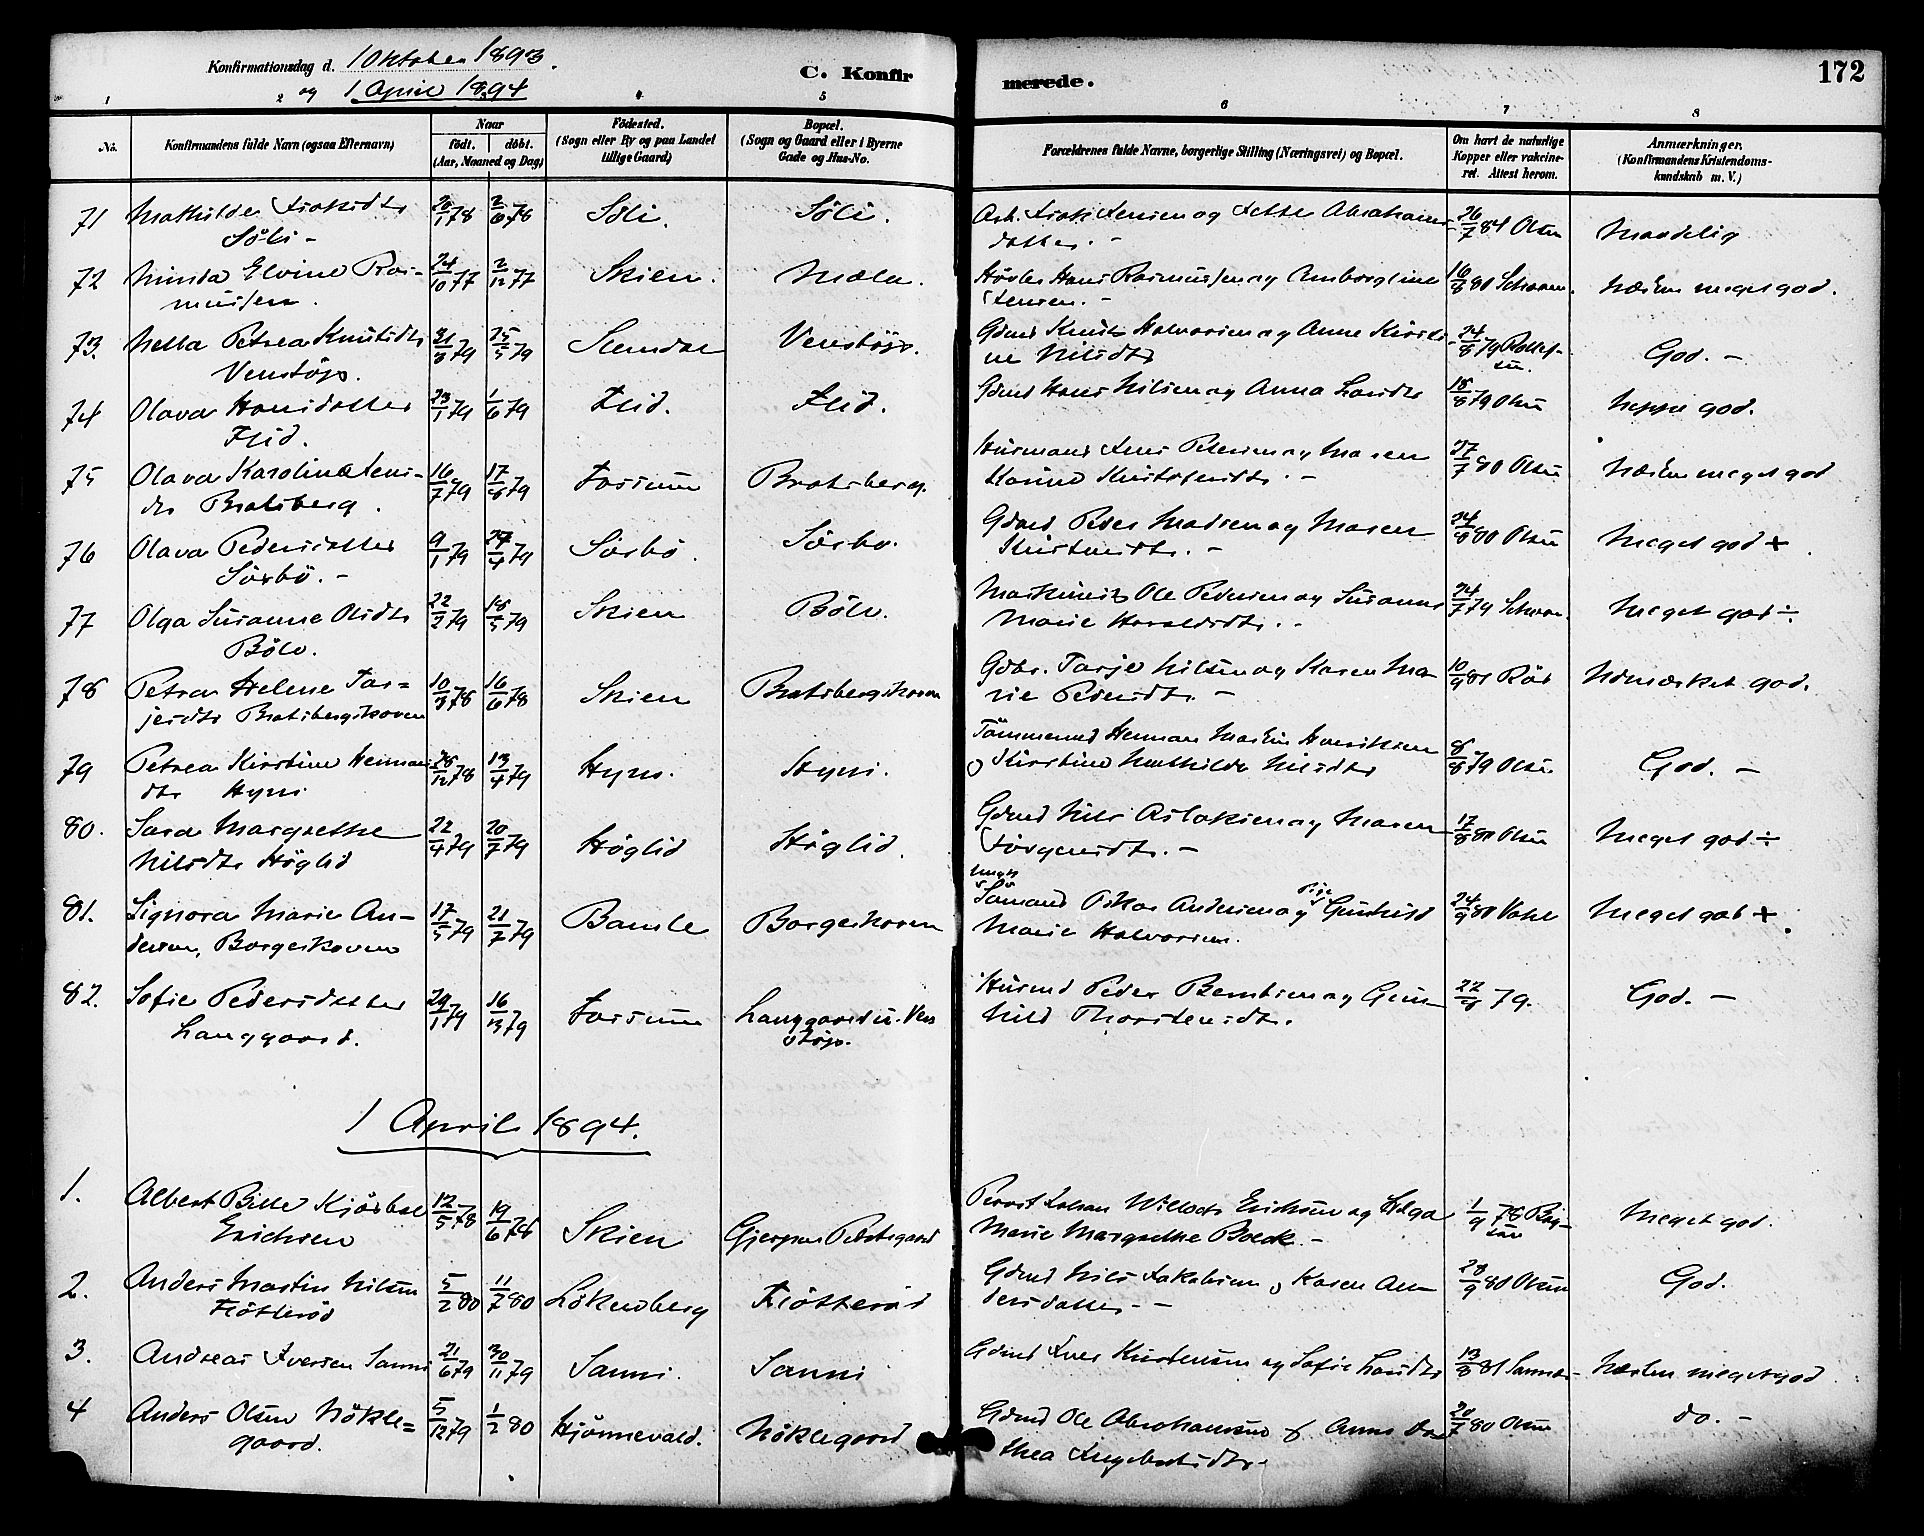 Konfirmationsdag d. 1 Oktober 1893.
og 1 April 1894
C. Konfirmerede.
172
1 2 4 5 6 7 8
No.
Konfirmandens fulde Navn (ogsaa Efternavn)
Naar
födt. döbt.
(Aar, Maaned og Dag)
Födested.
(Sogn eller By og paa Landet
tillige Gaard)
Bopæl.
(Sogn og Gaard eller i Byerne
Gade og Hus-No.
Forældrenes fulde Navne, borgerlige Stilling (Næringsvei) og Bopæl.
Om havt de naturlige
Kopper eller vakcine-
ret. Attest herom.
Anmærkninger.
(Konfirmandens Kristendoms-
kundskab m. V.)
71 Mathilde 78 2/6 78 Söli. Söli. Arb. og Abrahams- 26/7 84 Olsen Maadelig
Söli - datter. -
72 Minda Elvine Ras- 24/10 77 2/12 77 Skien. Mæla. Hans Rasmussen og 16/8 80 Schwam. Næsten meget god.
mussen. Jensen. -
73. Petrea Knutsdtr 79 15/5 79 Venstöp. Gdmd Knut Halvorsen og Anne Kirsti- 24/8 79 God. -
Venstöp. ne Nilsdtr
74 Olava Hansdatter 79 1/6 79 Flid. Flid. Gdmd Hans Nilsen og Anna Larsdtr 18/8 79 Olsen Neppe god.
Flid.
75 Olava Karoline Jens- 16/7 79 17/8 79 Fossum Bratsberg. Husmand Jens Petersen og Maren 27/7 80 Olsen Næsten meget god
dtr Bratsberg. Karine Kristofersdtr. -
76 Olava Pedersdatter 9/1 79 27/4 79 Sörbö. Sörbö. Gdmd Peder Madsen og Maren 24/8 80 Olsen Meget god +
Sörbö. - Kristensdtr. -
77 Olga Susanne Olsdtr 22/2 79 18/5 79 Skien Böle. Maskinist Ole Pedersen og Susanne 24/7 79 Schwam. Meget god ÷
Böle. Marie Haraldsdtr. -
78 Petrea Helene Tar= 10/3 78 16/6 78 Skien Bratsbergskoven Gdbr. Tarje Nilsen og Karen Ma- 10/9 81 Röd Udmærket god.
jesdtr Bratsbergskoven rie Pedersdtr. -
79 Petrea Kirstine Herman- 28/12 78 13/4 79 Hyni. Hyni. Tömmermd Herman Martin Henriksen 8/8 79 Olsen God. -
dtr Hyni og Kirstine Mathilde Nilsdtr
80. Sara Margrethe 22/4 79 20/7 79 Höglid Höglid. Gdmd Nils Aslaksen og Maren 17/8 80 Olsen Meget god ÷
Nilsdtr Höglid Jörgensdtr. -
81. Signora Marie An- 17/5 79 21/7 79 Bamle Borgeskoven Ungk Sömand Oskar Andersen og Pige Gunhild 24/9 80 Meget god +
dersen, Borgeskoven Marie Halvorsen.
82. Sofie Pedersdatter 79 16/3 79 Fossum Langgaard u. Ven- Husmd Peder Berntsen og Gun- 79. God. -
Langgaard. stöp. hild Thorstensdtr.
1 April 1894.
1. Albert Bille Kjörboe 12/5 78 19/6 78 Skien Gjerpen Præstegaard Provst Johan Willads Erichsen og Helga 1/9 78 Meget god.
Erichsen Marie Margrethe Boeck. -
2. Anders Martin Nilsen 5/2 80 11/7 80 Lökenberg Flötteröd Gdmd Nils Jakobsen og Karen An- 28/9 80 Olsen God.
Flötteröd dersdatter. -
3. Andreas Iversen Sanni 21/6 79 30/11 79 Sanni. Sanni Gdmd Iver Kristensen og Sofie Larsdtr 13/8 81 Næsten meget god
4 Anders Olsen Nökle= 5/12 79 1/2 80 Hjönnevald. Nöklegaard Gdmd Ole Abrahamsen & Anne Do- 20/7 80 Olsen do. -
gaard. thea Ingebretsdtr. -